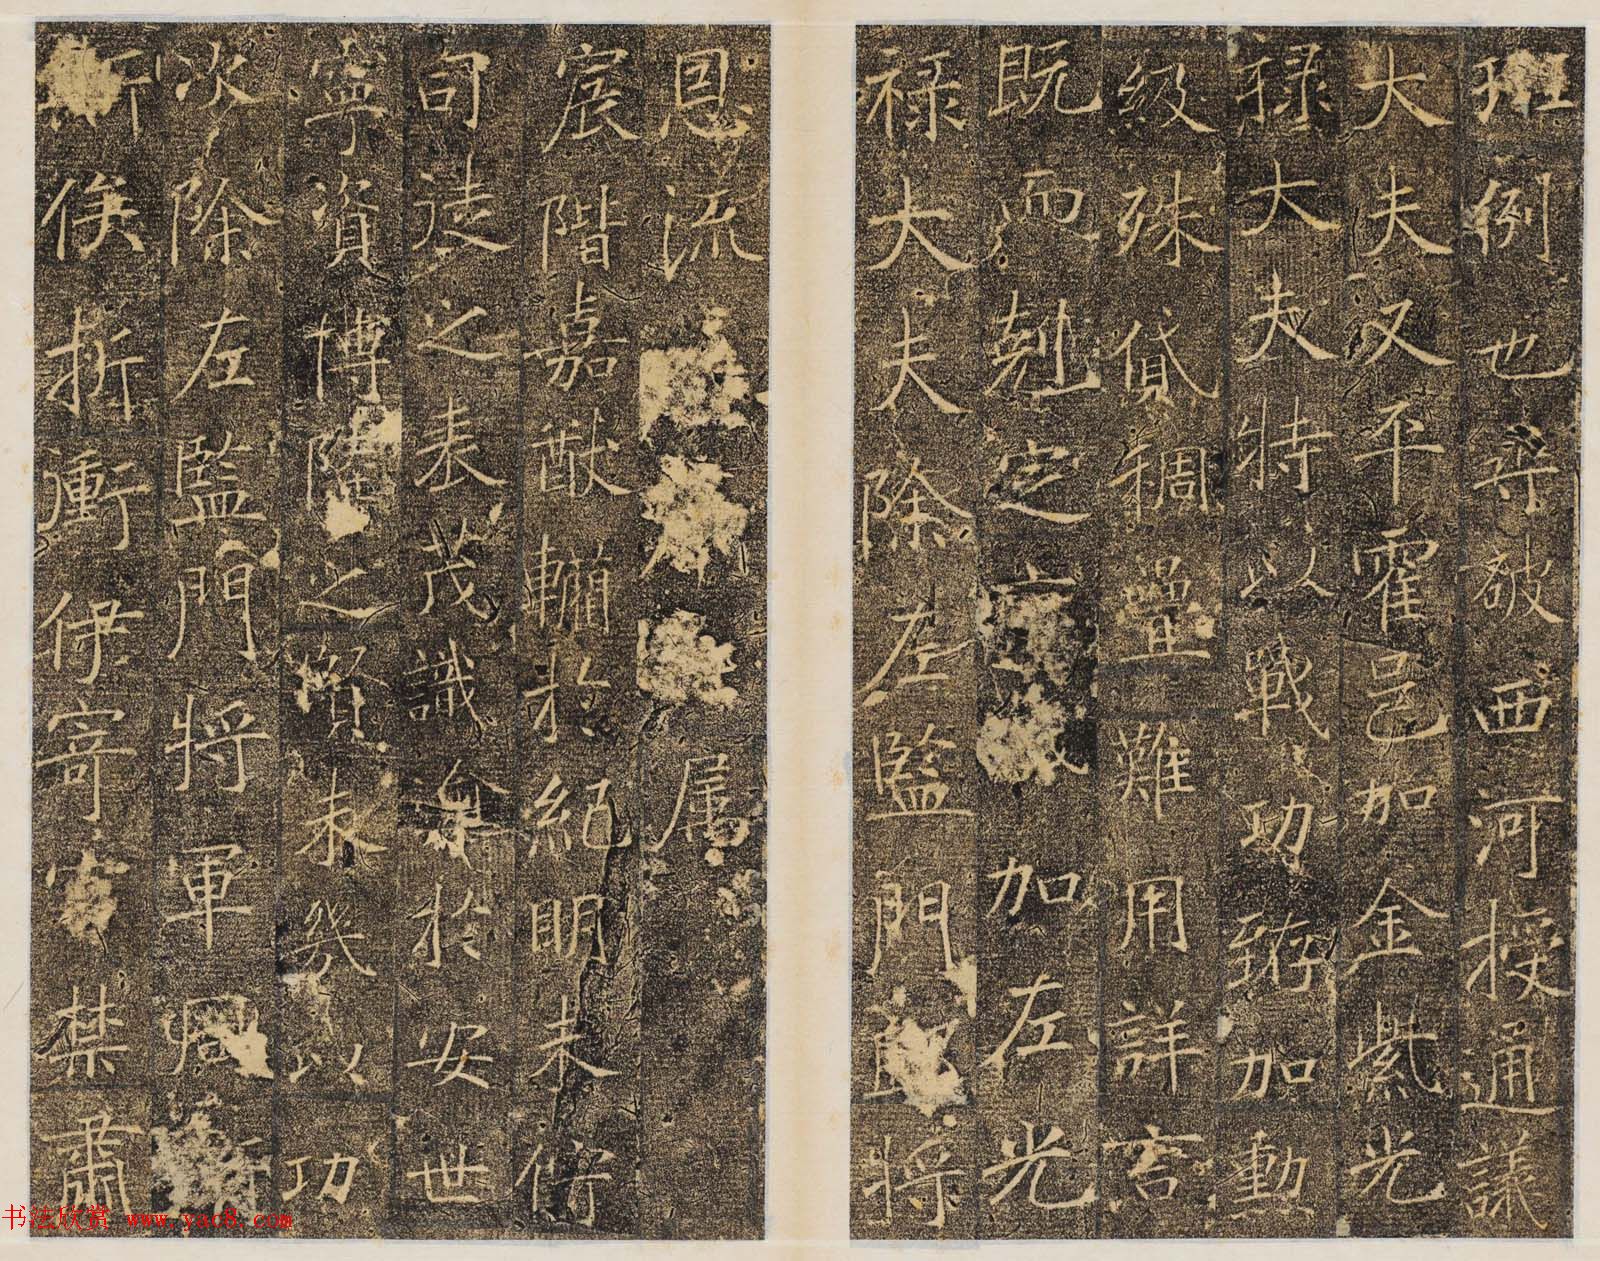 班例也尋破西河授通議
大夫又平霍邑加金紫光
祿大夫特以戰功加勳
級殊貸稠疊難用詳言
既而剋定加左光
祿大夫除左監門直將
恩流属
扆階嘉猷於紀明未侔
司徒之表茂識於安世
寧資博陸之賢未幾以功
次除左監門將軍
俟折衝伊寄禁肅
书法欣赏 www.yac8.com